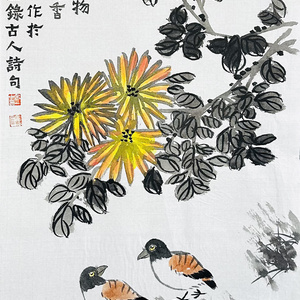 物
香
作於
錄古人詩句